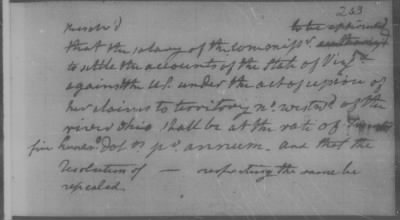 253
Resolv'd
that the salary of the Commissr. to be appointed
to settle the accounts of the State of Virga.
against the U.S. under the act of cession of
her claims to territory no. westwd. of the
river Ohio shall be at the rate of
five hundd. dolrs. pr. annum. and that the
resolution of — respecting the same be
repealed.